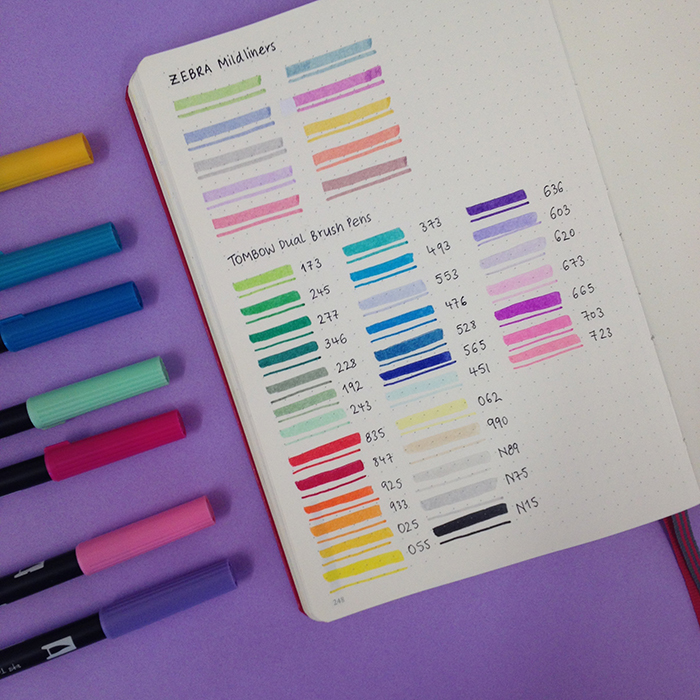 ZEBRA Mildliners
TOMBOW DUAL BRUSH PENS
173
245
277
346
228
192
243
835
847
925
933
025
055
373
493
553
476
528
565
451
062
990
N89
N75
N15
636
603
620
673
665
703
723